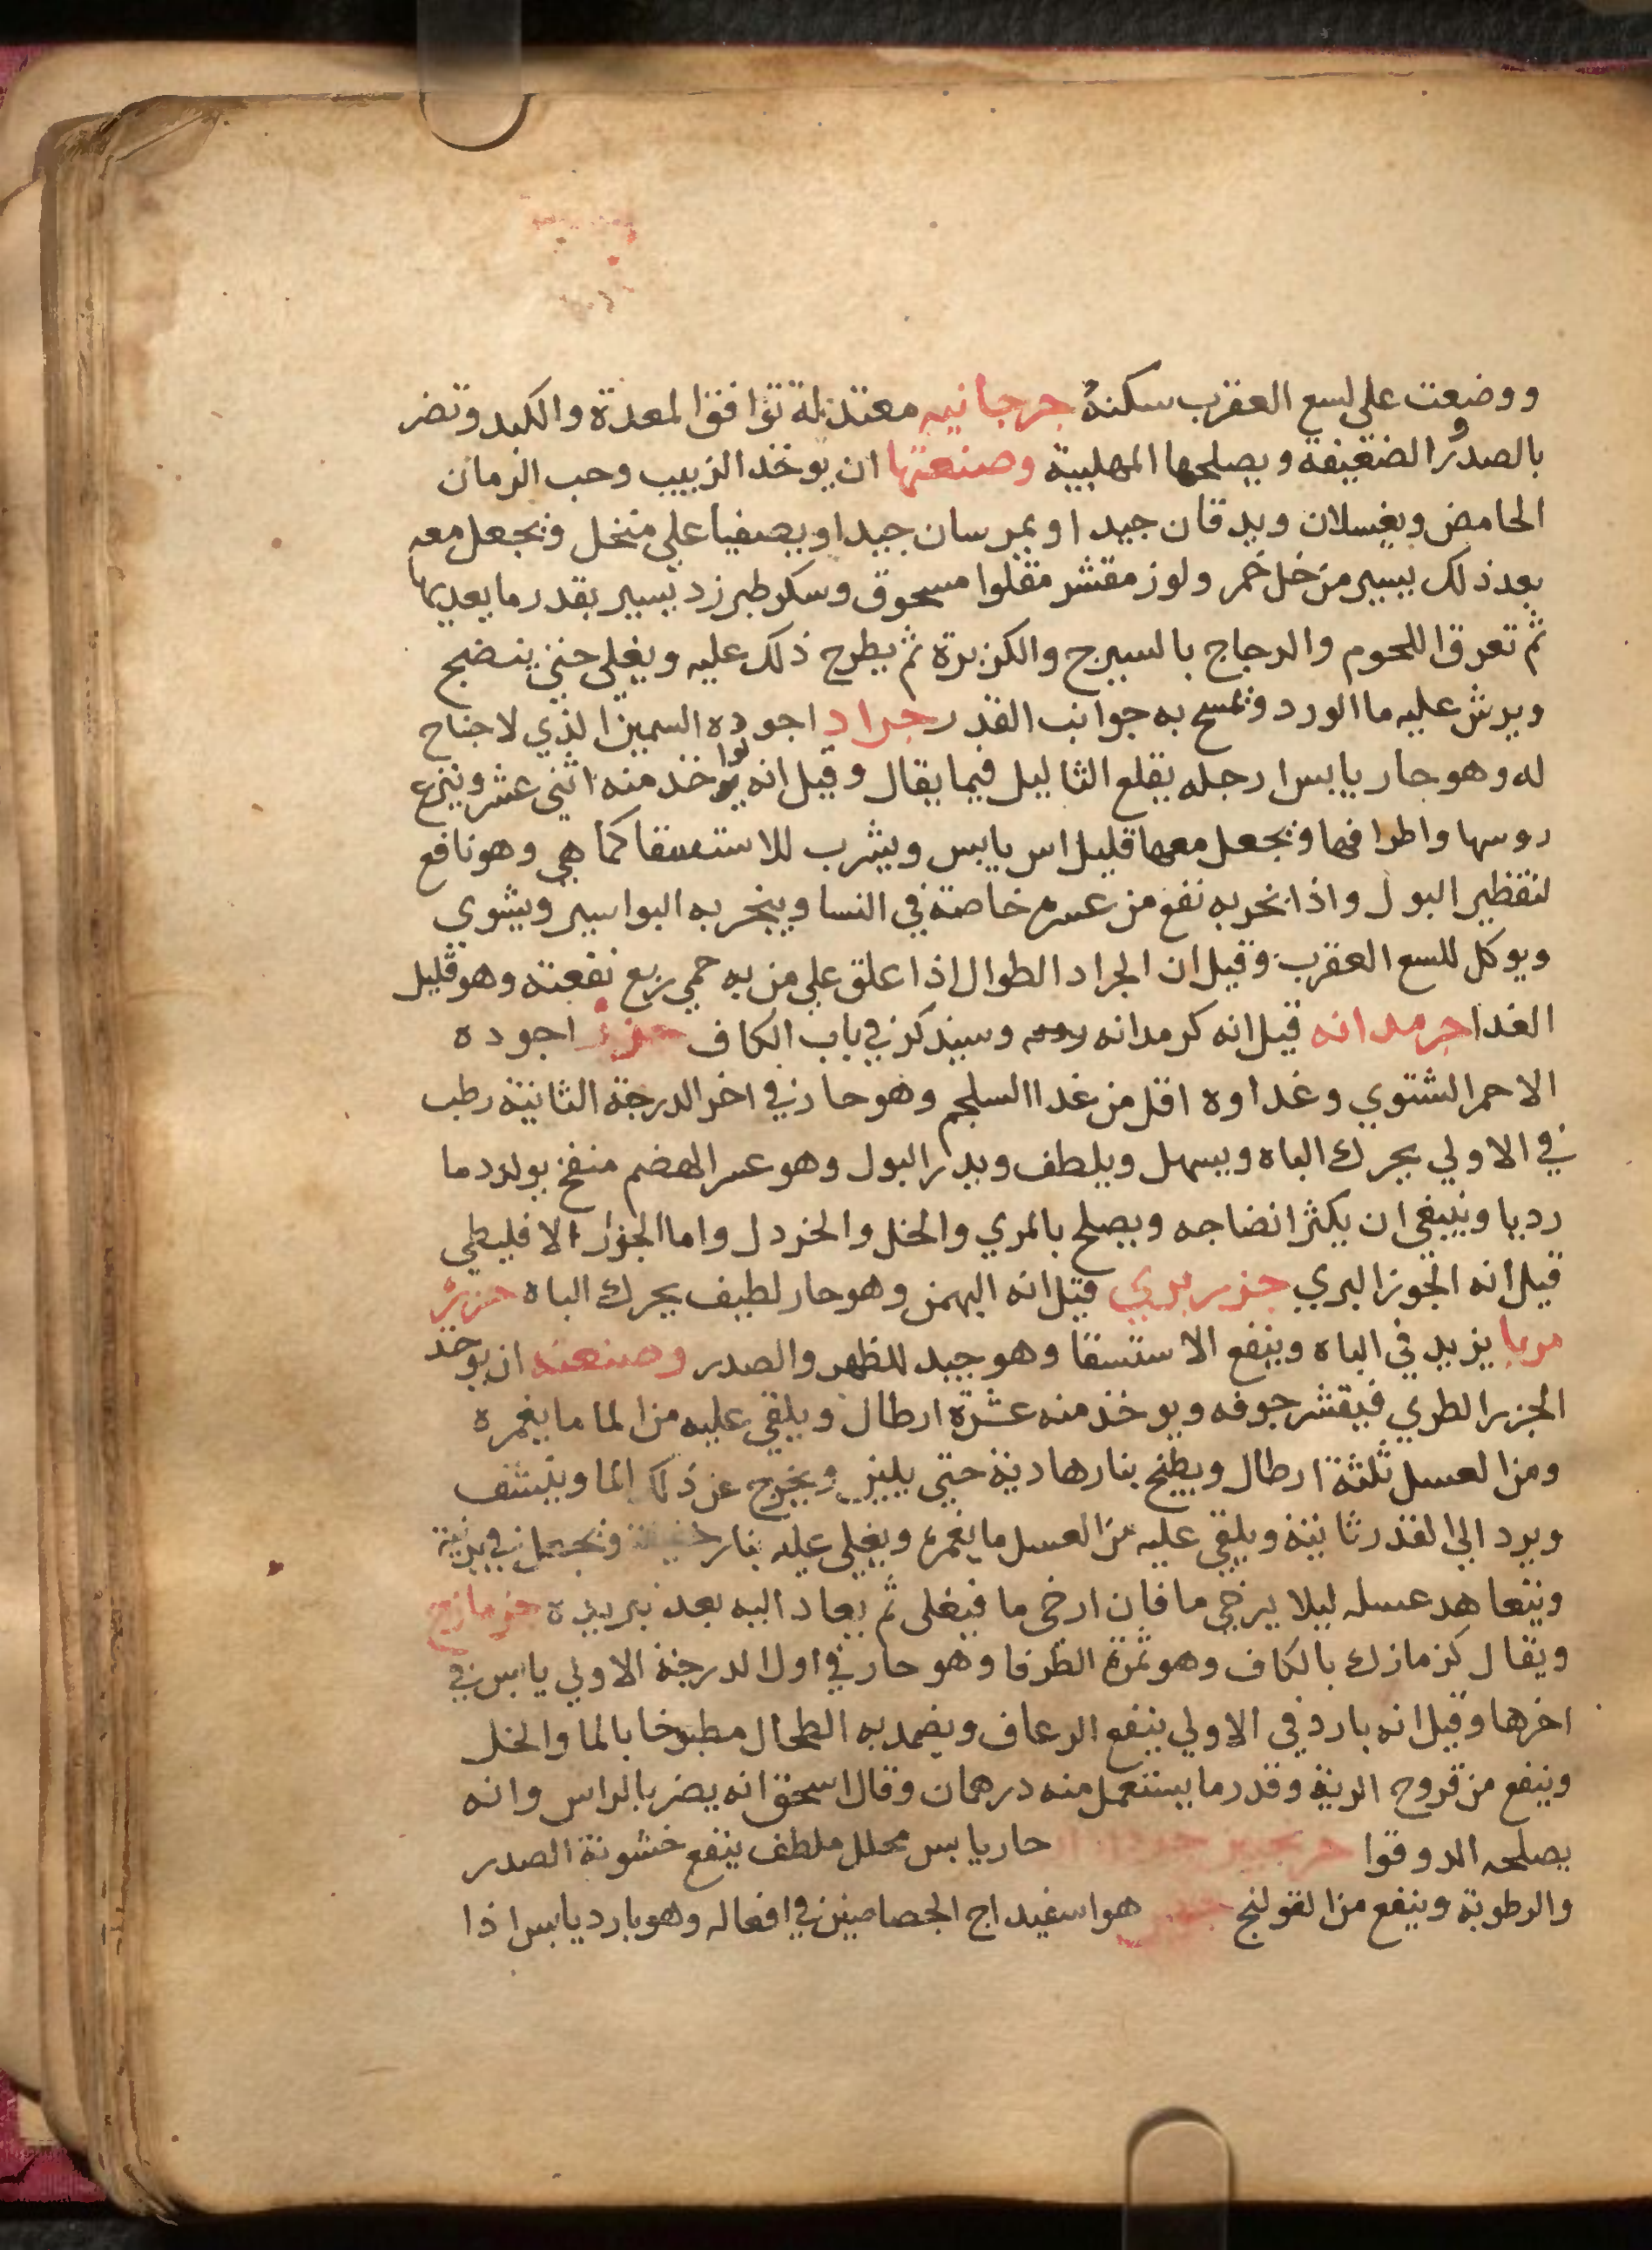 ووضعت علي لسع العقرب سكنه جرجانيه معتدلة توافق المعدة والكبد وتضر
بالصدور الضعيفة ويصلحها المهلبية وصنعتها ان يوخذ الزبيب وحب الرمان
الحامض ويغسلان ويدقان جيدا ويمرسان جيدا ويصفيا علي منخل ويجعل معه
بعد ذلك يسير من خل خمر ولوز مقشر مقلوا مسحوق وسكر طبرزد يسير بقدر ما يعديها
ثم تعرق اللحوم والدجاج بالسيرج والكزبرة ثم يطرح ذلك عليه ويغلي حتي ينضج
ويرش عليه ما الورد ويمسح به جوانب القدر جراد اجوده السمين الذي لا جناح
له وهو حار يابس ارجله يقلع الثاليل فيما يقال وقيل انه يوخذ منه اثني عشر وينزع
روسها واطرافها ويجعل معها قليل اس يابس ويشرب للاستسقا كما هي وهو نافع
لتقطير البول واذا بخر به نفع من عسره خاصة في النسا ويبخر به البواسير ويشوي
ويوكل للسع العقرب وقيل ان الجراد الطوال اذا علق علي من به حمي ربع نفعته وهو قليل
الغدا جرمدانه قيل انه كرمدانه وسيذكر في باب الكاف جزر اجوده
الاحمر الشتوي وغداوه اقل من غدا السلجم وهو حار في اخر الدرجة الثانية رطب
في الاولي يحرك الباه ويسهل ويلطف ويدر البول وهو عسر الهضم منفخ يولد دما
رديا وينبغي ان يكثر انضاجه ويصلح بالمري والخل والخردل واما الجزر الاقليطي
قيل انه الجوز البري جزر بري قيل انه البهمن وهو حار لطيف يحرك الباه جزر
مربا يزيد في الباه وينفع الاستسقا وهو جيد للظهر والصدر وصنعته ان يوخد
الجزر الطري فيقشر جوفه ويوخذ منه عشرة ارطال ويلقي عليه من الما ما يغمره
ومن العسل ثلثة ارطال ويطبخ بنار هادية حتي يلين ويخرج عن ذلك الما وينشف
ويرد الي القدر ثانية ويلقي عليه من العسل ما يغمره ويغلي عليه بنار خفيفة ويجعل في برنية
ويتعاهد عسله ليلا يرخي ما فان ارخي ما فيغلي ثم يعاد اليه بعد تبريده جزمازج
ويقال كزمازك بالكاف وهو ثمرة الطرفا وهو حار في اول الدرجة الاولي يابس في
اخرها وقيل انه بارد في الاولي ينفع الرعاف ويضمد به الطحال مطبوخا بالما والخل
وينفع من قروح الرية وقدر ما يستعمل منه درهمان وقال اسحق انه يضر بالراس وانه
يصلحه الدوقوا حار يابس محلل ملطف ينفع خشونة الصدر
والرطوبة وينفع من القولنج هو اسفيداج الجصاصين في افعاله وهو بارد يابس اذا